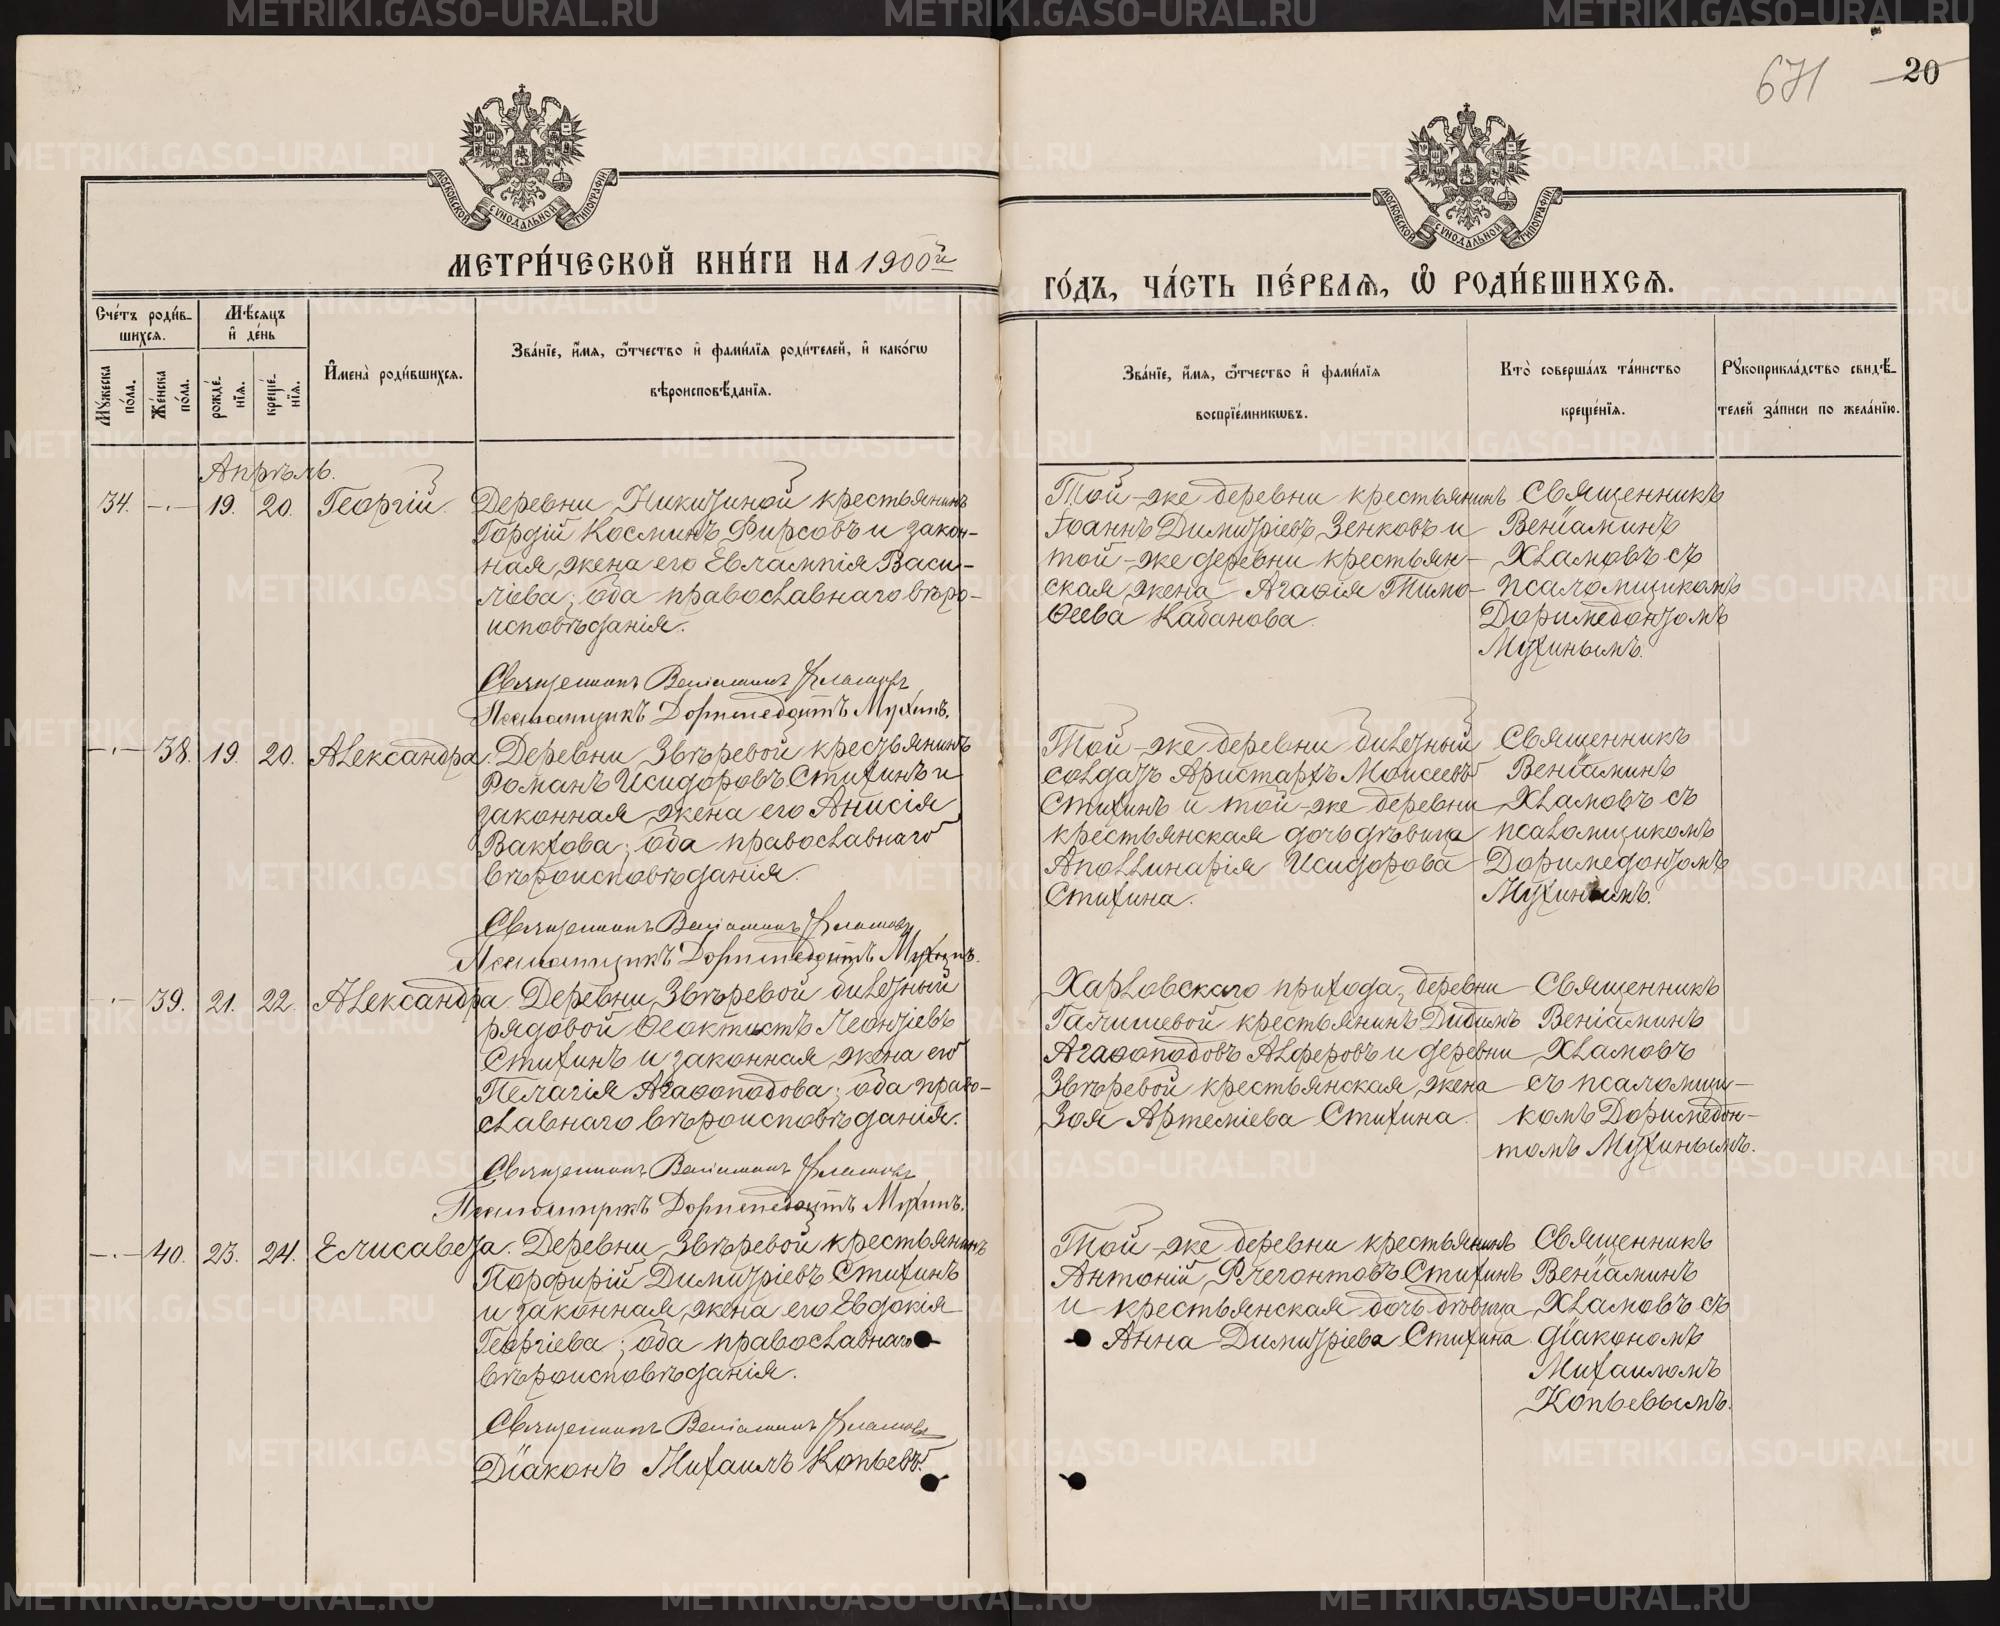 671 20
МОСКОВСКОЙ СѴНОДАЛЬНОЙ ТИПОГРАФІИ
МОСКОВСКОЙ СѴНОДАЛЬНОЙ ТИПОГРАФІИ
МЕТРИ́ЧЕСКОЙ КНИ́ГИ НА 1900й
ГО́ДЪ, ЧА́СТЬ ПЕ́РВАЯ, Ѡ҆ РОДИ́ВШИХСѦ.
Сче́тъ роди́в-
шихсѧ.
Мꙋ́жеска по́ла.
Же́нска по́ла.
Мѣ́сѧцъ
и҆ де́нь
рожде́нїѧ.
креще́нїѧ.
И҆мена̀ роди́вшихсѧ.
Зва́нїе, и҆́мѧ, ѻ҆́тчество и҆ фами́лїѧ роди́телей, и҆ како́гѡ
вѣроисповѣ́данїѧ.
Зва́нїе, и҆́мѧ, ѻ҆́тчество и҆ фами́лїѧ
воспрїе́мникѡвъ.
Кто̀ соверша́лъ та́инство
креще́нїѧ.
Рꙋкоприкла́дство свидѣ́-
телей за́писи по жела́нїю.
Апрѣль.
34. -.- 19. 20. Георгій. Деревни Никитиной крестьянинъ
Гордій Косминъ Фирсовъ и закон-
ная жена его Евлампія Васи-
ліева; оба православнаго вѣро-
исповѣданія.
Священникъ Веніаминъ Хламовъ
Псаломщикъ Доримедонтъ Мухинъ.
Той-же деревни крестьянинъ
Іоаннъ Димитріевъ Зенковъ и
той-же деревни крестьян-
ская жена Агаѳія Тимо-
ѳеева Кабанова.
Священникъ
Веніаминъ
Хламовъ съ
псаломщикомъ
Доримедонтомъ
Мухинымъ.
-.- 38. 19. 20. Александра. Деревни Звѣревой крестьянинъ
Романъ Исидоровъ Стихинъ и
законная жена его Анисія
Вакхова; оба православнаго
вѣроисповѣданія.
Священникъ Веніаминъ Хламовъ
Псаломщикъ Доримедонтъ Мухинъ.
Той-же деревни билетный
солдатъ Аристархъ Моисеевъ
Стихинъ и той-же деревни
крестьянская дочь дѣвица
Аполлинарія Исидорова
Стихина.
Священникъ
Веніаминъ
Хламовъ съ
псаломщикомъ
Доримедонтомъ
Мухинымъ.
-.- 39. 21. 22. Александра. Деревни Звѣревой билетный
рядовой Ѳеоктистъ Леонтіевъ
Стихинъ и законная жена его
Пелагія Агаѳоподова; оба право-
славнаго вѣроисповѣданія.
Священникъ Веніаминъ Хламовъ
Псаломщикъ Доримедонтъ Мухинъ.
Харловскаго прихода, деревни
Галишевой крестьянинъ Дидимъ
Агаѳоподовъ Алферовъ и деревни
Звѣревой крестьянская жена
Зоя Артеміева Стихина.
Священникъ
Веніаминъ
Хламовъ
съ псаломщи-
комъ Доримедон-
томъ Мухинымъ.
-.- 40. 23. 24. Елисавета. Деревни Звѣревой крестьянинъ
Порфирій Димитріевъ Стихинъ
и законная жена его Евдокія
Георгіева; оба православнаго
вѣроисповѣданія.
Священникъ Веніаминъ Хламовъ
Діаконъ Михаилъ Копьевъ.
Той-же деревни крестьянинъ
Антоній Флегонтовъ Стихинъ
и крестьянская дочь дѣвица
Анна Димитріева Стихина
Священникъ
Веніаминъ
Хламовъ съ
діакономъ
Михаиломъ
Копьевымъ.
METRIKI.GASO-URAL.RU